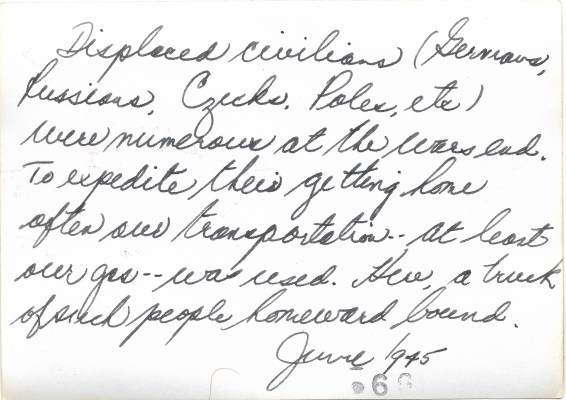 Displaced civilians (Germans,
Russians, Czechs, Poles, etc)
were numerous at the wars end.
To expedite their getting home
often our transportation -- at least
our gas -- was used. Here, a truck
of such people homeward bound.
June 1945